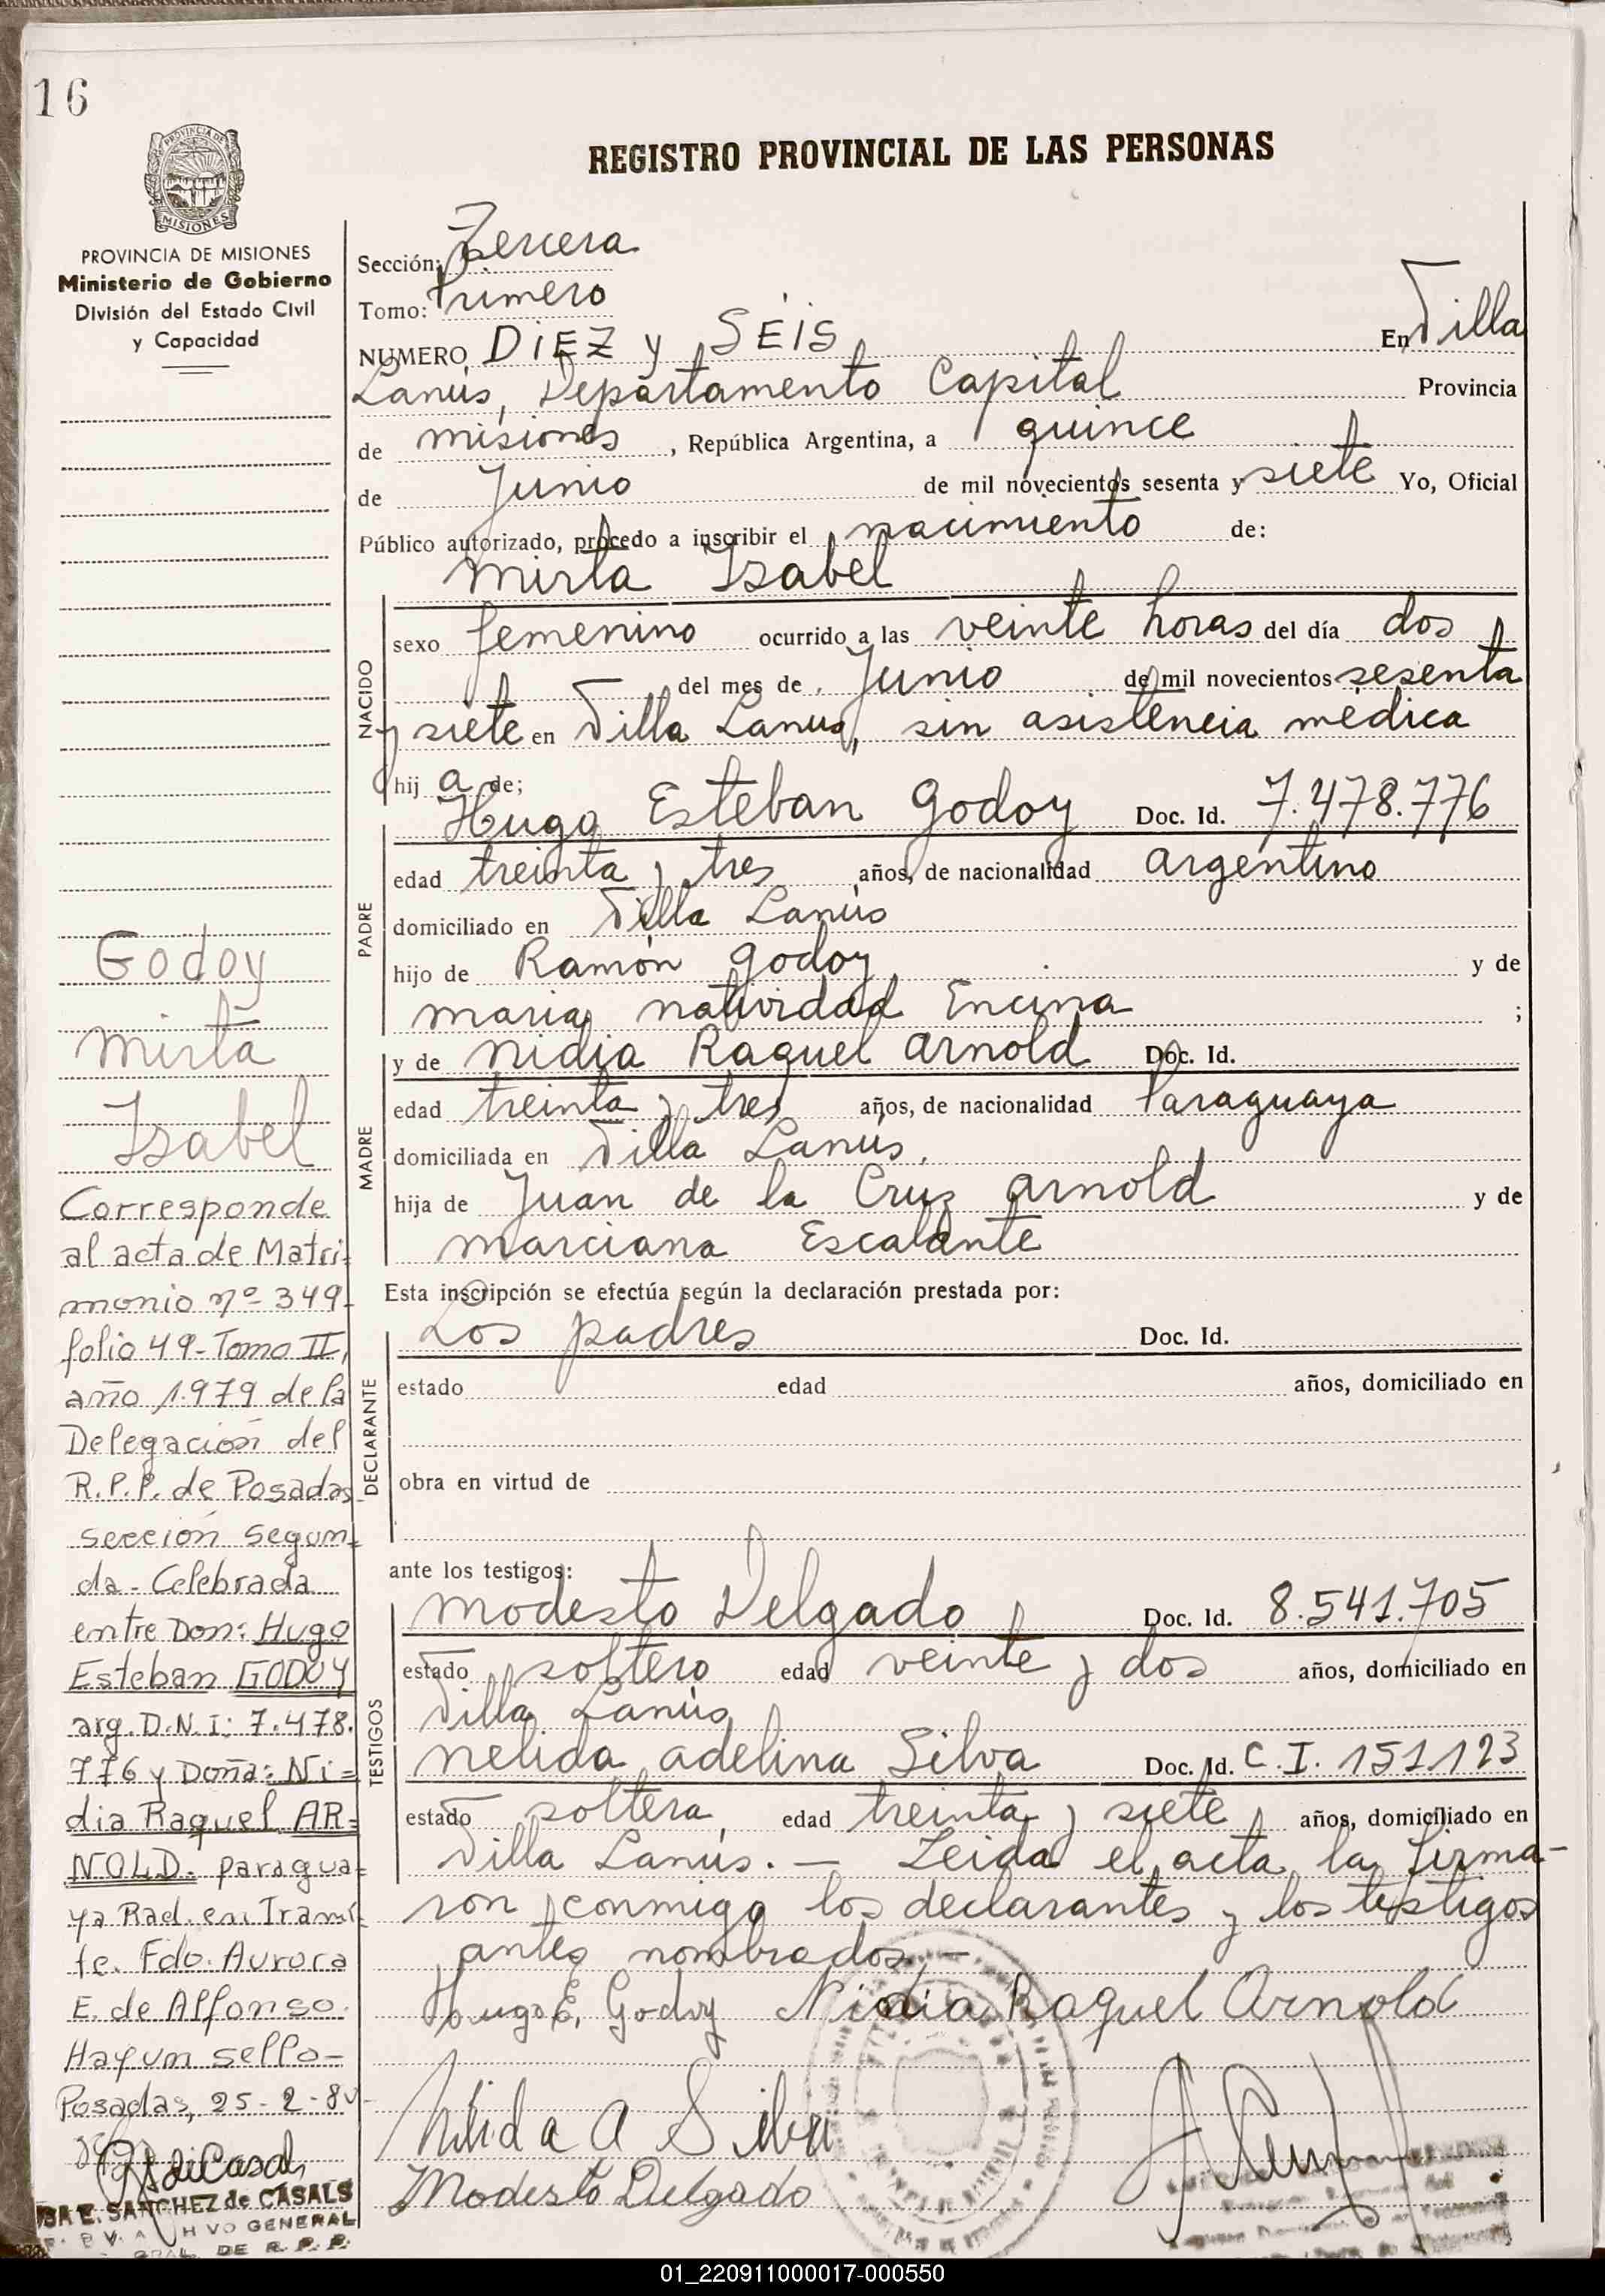 16
PROVINCIA DE MISIONES
MISIONES
PROVINCIA DE MISIONES
Ministerio de Gobierno
División del Estado Civil
y Capacidad
Godoy
Mirta
Isabel
Corresponde
al acta de Matri-
monio nº 349-
folio 49-Tomo II,
año 1.979 de la
Delegación del
R.P.P. de Posadas
sección segun-
da - Celebrada
entre Don: Hugo
Esteban GODOY
arg. D.N.I: 7.478.
776 y Doña: Ni=
dia Raquel AR=
NOLD. paragua=
ya Rad. en Trami-
te. Fdo. Aurora
E. de Alfonso.
Hay un sello-
Posadas, 25-2-80
E. SANCHEZ de CASALS
GENERAL
DE R. P. P.
REGISTRO PROVINCIAL DE LAS PERSONAS
Sección: Tercera
Tomo: Primero
NUMERO DIEZ y SEIS En Villa
Lanús, Departamento Capital Provincia
de Misiones, República Argentina, a quince
de Junio de mil novecientos sesenta y siete Yo, Oficial
Público autorizado, procedo a inscribir el nacimiento de:
Mirta Isabel
NACIDO
sexo femenino ocurrido a las veinte horas del día dos
del mes de Junio de mil novecientos sesenta
y siete en Villa Lanus, sin asistencia médica
hij a de;
PADRE
Hugo Esteban Godoy Doc. Id. 7.478.776
edad treinta y tres años, de nacionalidad argentino
domiciliado en Villa Lanús
hijo de Ramón Godoy y de
Maria Natividad Encina ;
MADRE
y de Nidia Raquel Arnold Doc. Id.
edad treinta y tres años, de nacionalidad Paraguaya
domiciliada en Villa Lanús,
hija de Juan de la Cruz Arnold y de
Marciana Escalante
Esta inscripción se efectúa según la declaración prestada por:
DECLARANTE
Los padres Doc. Id.
estado edad años, domiciliado en
obra en virtud de
ante los testigos:
TESTIGOS
Modesto Delgado Doc. Id. 8.541.705
estado soltero edad veinte y dos años, domiciliado en
Villa Lanús
Nelida Adelina Silva Doc. Id. C.I. 151123
estado soltera, edad treinta y siete años, domiciliado en
Villa Lanús. — Leida el acta, la firma-
ron conmigo los declarantes y los testigos
antes nombrados.-
Hugo E. Godoy Nidia Raquel Arnold
Nélida A Silva
Modesto Delgado
01_220911000017-000550